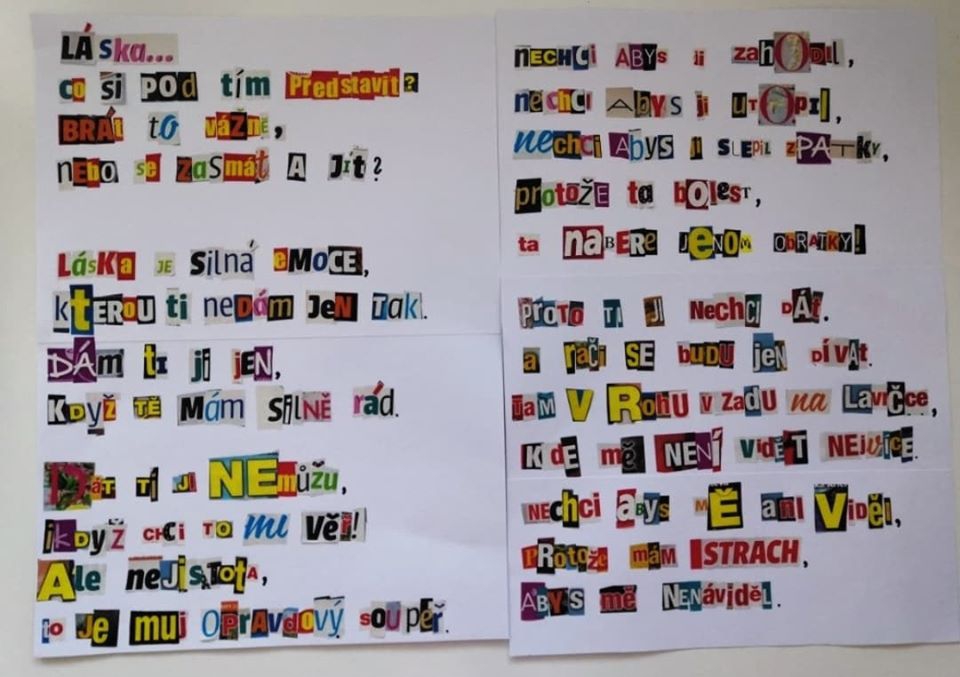 Láska...
co si pod tím Představit?
BRÁt to vážně,
nebo se zaSmát A Jít?
LásKa JE Silná eMOCE,
kterou ti neDám JeN Tak.
DÁm ti ji jEN,
KDyž TĚ MÁm SilNĚ rád.
DÁT Ti Ji NEmůžu,
iKDyž cHCi TO mi Věř!
Ale neJiSTOTA,
to Je muj OPRAVDOVÝ souPéř.
NECHCi ABYs ji zahODIL,
nechci Abys ji uTOPil,
nechci Abys ji SLEPIL zPATky,
protožE ta bOlesT,
ta naBERE JENOM OBRÁTKY!
PROTO Ti Ji NechCi DÁt.
a rači SE buDu jeN DÍVAT.
tam V RohU v zadu na LaviČce,
KDE mě NENÍ ViDĚT NEJvíCE.
NEchCi abys mĚ anI Viděl,
PROTOže mám STRACH,
ABYS mě NENáviděl.